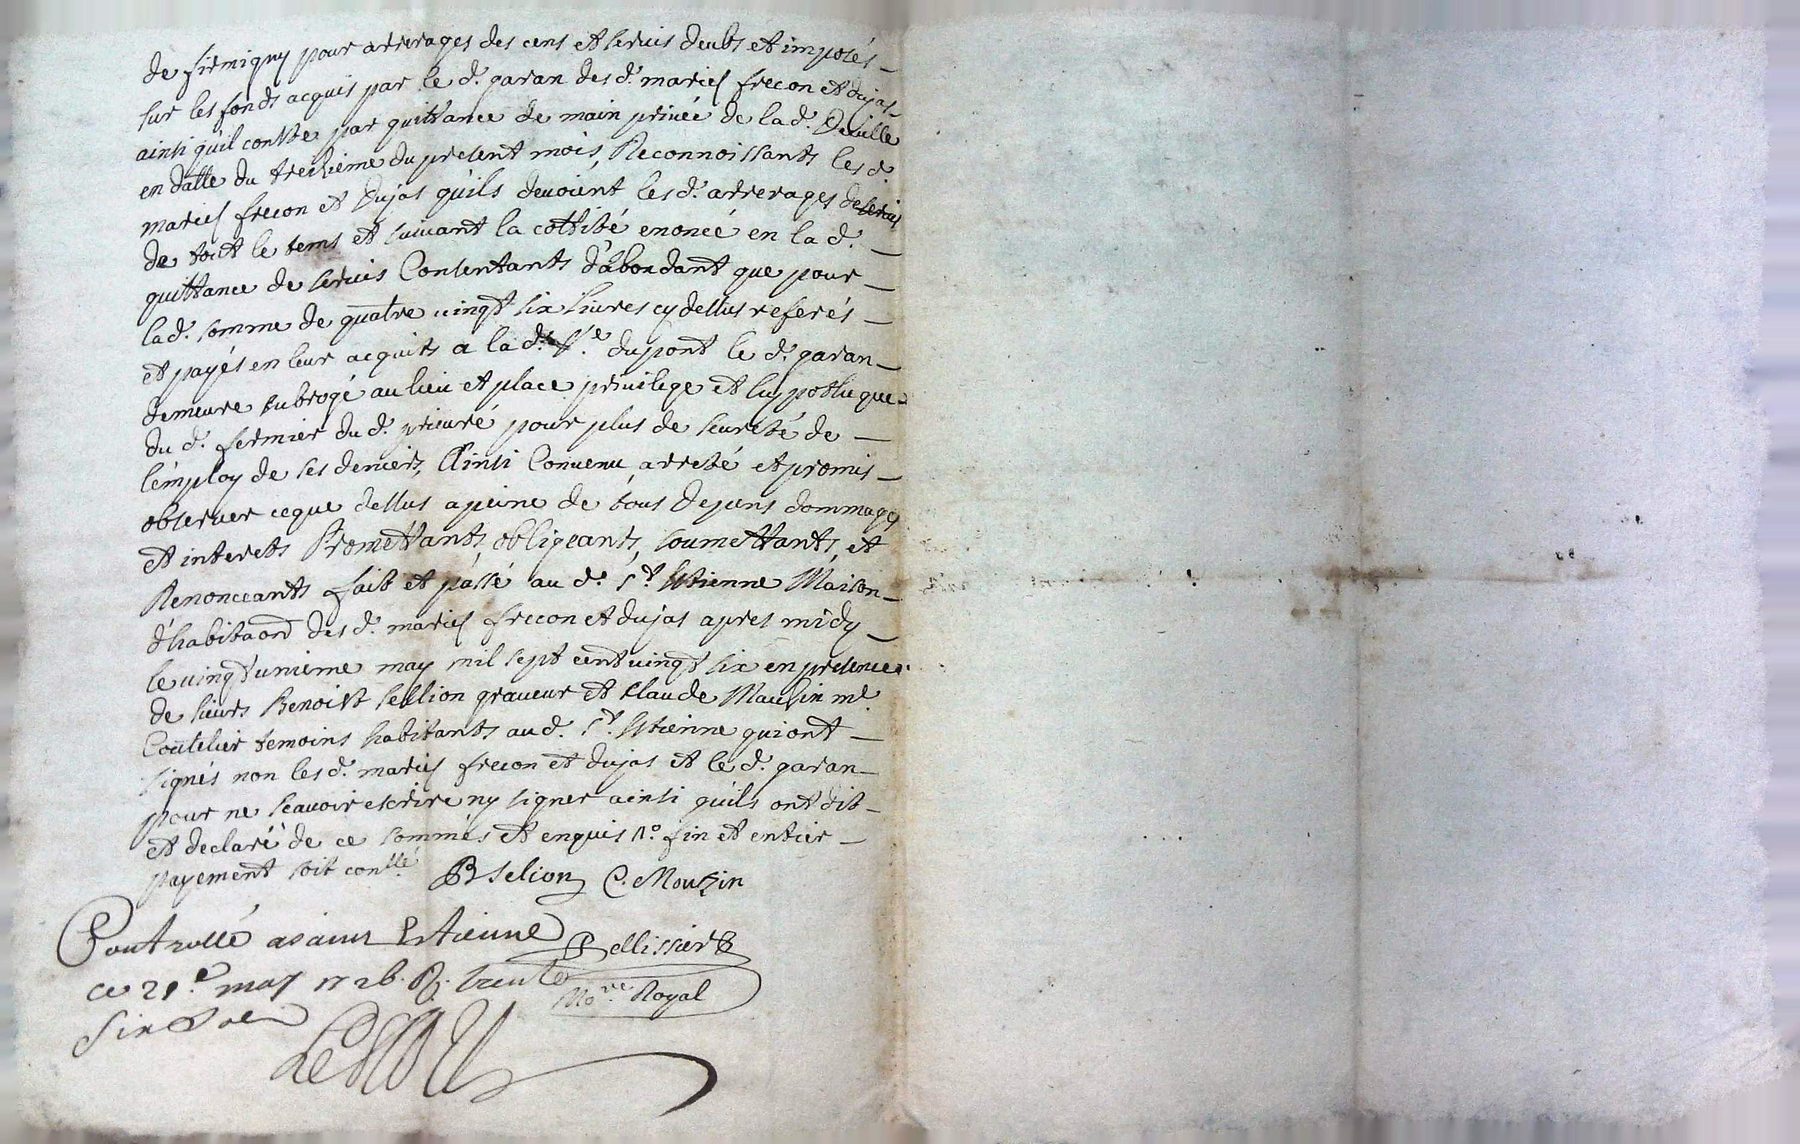 de firminy pour arrerages des cens et servis deubs et imposés
sur les fonds acquis par le d. garan des d. mariés frecon et dujas
ainsi quil conste par quittance de main privée de la d. Deville
en datte du treizieme du present mois, Reconnoissants les d.
mariés frecon et Dujas quils devoient les d. arrerages de servis
de tout le tems et suivant la cottité enoncé en la d.
quittance de servis Consentants d'abondant que pour
la d. somme de quatre vingt six livres cy dessus referés
et payés en leur acquits a la d. Ve. dupont le d. garan
demeure subrogé au lieu et place privilege et hyppotheque
du d. fermier du d. prieuré pour plus de seureté de
l'employ de ses deniers, Ainsi Convenu arreté et promis
observer ce que dessus a peine de tous depens dommages
et interets Promettants, obligeants, soumettants, et
Renonceants fait et passé au d. St. Estienne Maison
d'habitaon des d. mariés frecon et dujas apres midy
le vingt unieme may mil sept cent vingt six en presence
de sieurs Benoist sellion graveur et Claude Mouzin me.
Coutelier temoins habitants au d. St. Estienne qui ont
signés non les d. mariés frecon et dujas et le d. garan
pour ne scavoir escrire ny signer ainsi quils ont dit
et declaré de ce sommés et enquis no. fin et entier
payement soit conllé.
B selion C. Mouzin
Controllé a saint Estienne
Pellissier
ce 21e. may 1726. R. trente
No.re Royal
six sols